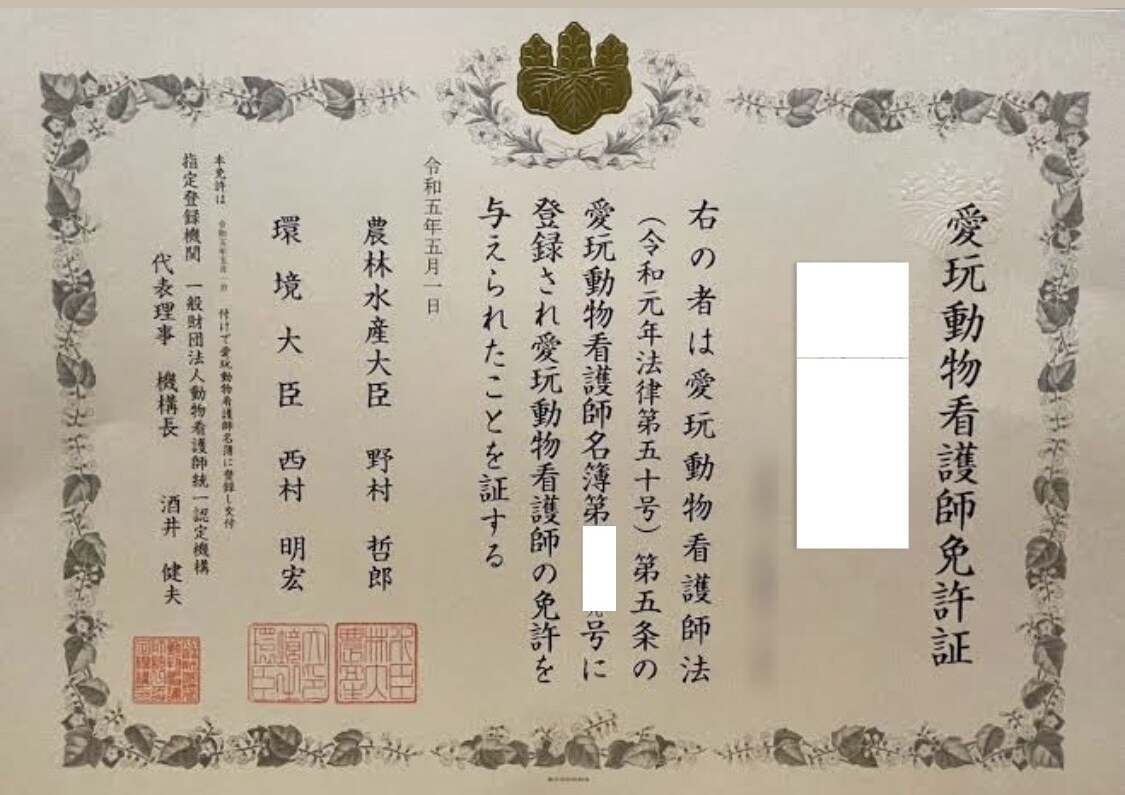 愛玩動物看護師免許証
右の者は愛玩動物看護師法
（令和元年法律第五十号）第五条の
愛玩動物看護師名簿第
号に
登録され愛玩動物看護師の免許を
与えられたことを証する
令和五年五月一日
農林水産大臣 野村 哲郎
環境大臣 西村 明宏
本免許は 令和五年五月一日 付けで愛玩動物看護師名簿に登録し交付
指定登録機関 一般財団法人動物看護師統一認定機構
代表理事 機構長 酒井 健夫